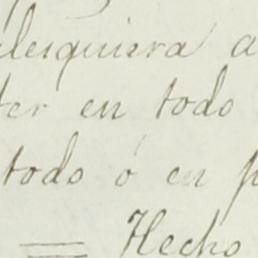 alesquiera a
ter en todo
todo ó en p
= Hecho